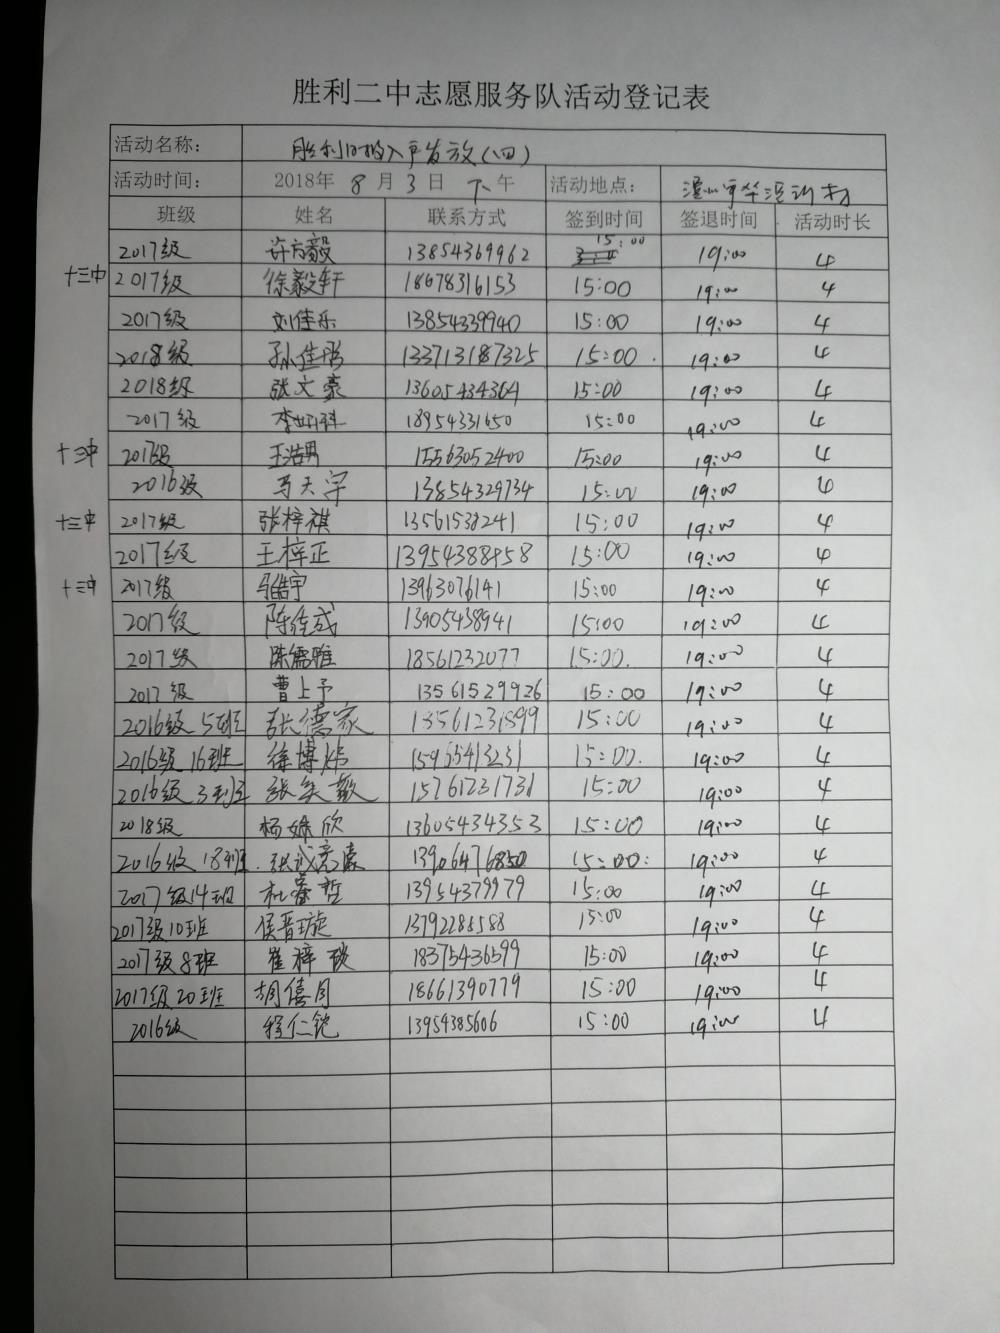 胜利二中志愿服务队活动登记表
活动名称: 胜利日报入户发放(四)
活动时间: 2018年 8月3日 下午 活动地点:
班级 姓名 联系方式 签到时间 签退时间 活动时长
2017级 许方毅 13854369962 15:00 19:00 4
十三中 2017级 徐毅轩 18678316153 15:00 19:00 4
2017级 刘佳乐 13854339940 15:00 19:00 4
2018级 孙佳彤 133713187325 15:00 19:00 4
2018级 张文豪 13605434364 15:00 19:00 4
2017级 李 18954331650 15:00 19:00 4
十三中 2017级 王浩男 15563052400 15:00 19:00 4
2016级 马天宇 13854329734 15:00 19:00 4
十三中 2017级 张梓祺 13561538241 15:00 19:00 4
2017级 王梓正 13954388958 15:00 19:00 4
十三中 2017级 马皓宇 13963076141 15:00 19:00 4
2017级 陈佳成 13905438941 15:00 19:00 4
2017级 陈儒雅 18561232077 15:00. 19:00 4
2017级 曹上予 13561529926 15:00 19:00 4
2016级 5班 张德家 13561231899 15:00 19:00 4
2016级 16班 徐博炜 15965413231 15:00. 19:00 4
2016级 3班 张 15761231731 15:00 19:00 4
2018级 杨 欣 13605434353 15:00 19:00 4
2016级 18班. 张 13906476850 15:00: 19:00 4
2017级14班 杜 哲 13954379979 15:00 19:00 4
2017级10班 侯晋璇 13792285588 15:00 19:00 4
2017级8班 崔梓琰 18375436599 15:00 19:00 4
2017级20班 胡僖月 18661390779 15:00 19:00 4
2016级 程仁铊 13954385606 15:00 19:00 4